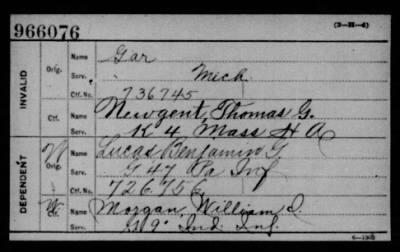 966076
(3-H-d)
INVALID
Orig.
Name Gar
Serv. " Mich
Ctf. No. 736745
Ctf.
Name Newgent, Thomas G.
Serv. K 4, Mass H A
DEPENDENT
Orig. W
Name Lucas Benjamin G.
Serv. I 47 Pa Inf
Ctf. No. 726756
Ctf. W
Name Morgan, William I.
Serv. 9" Ind. Inf.